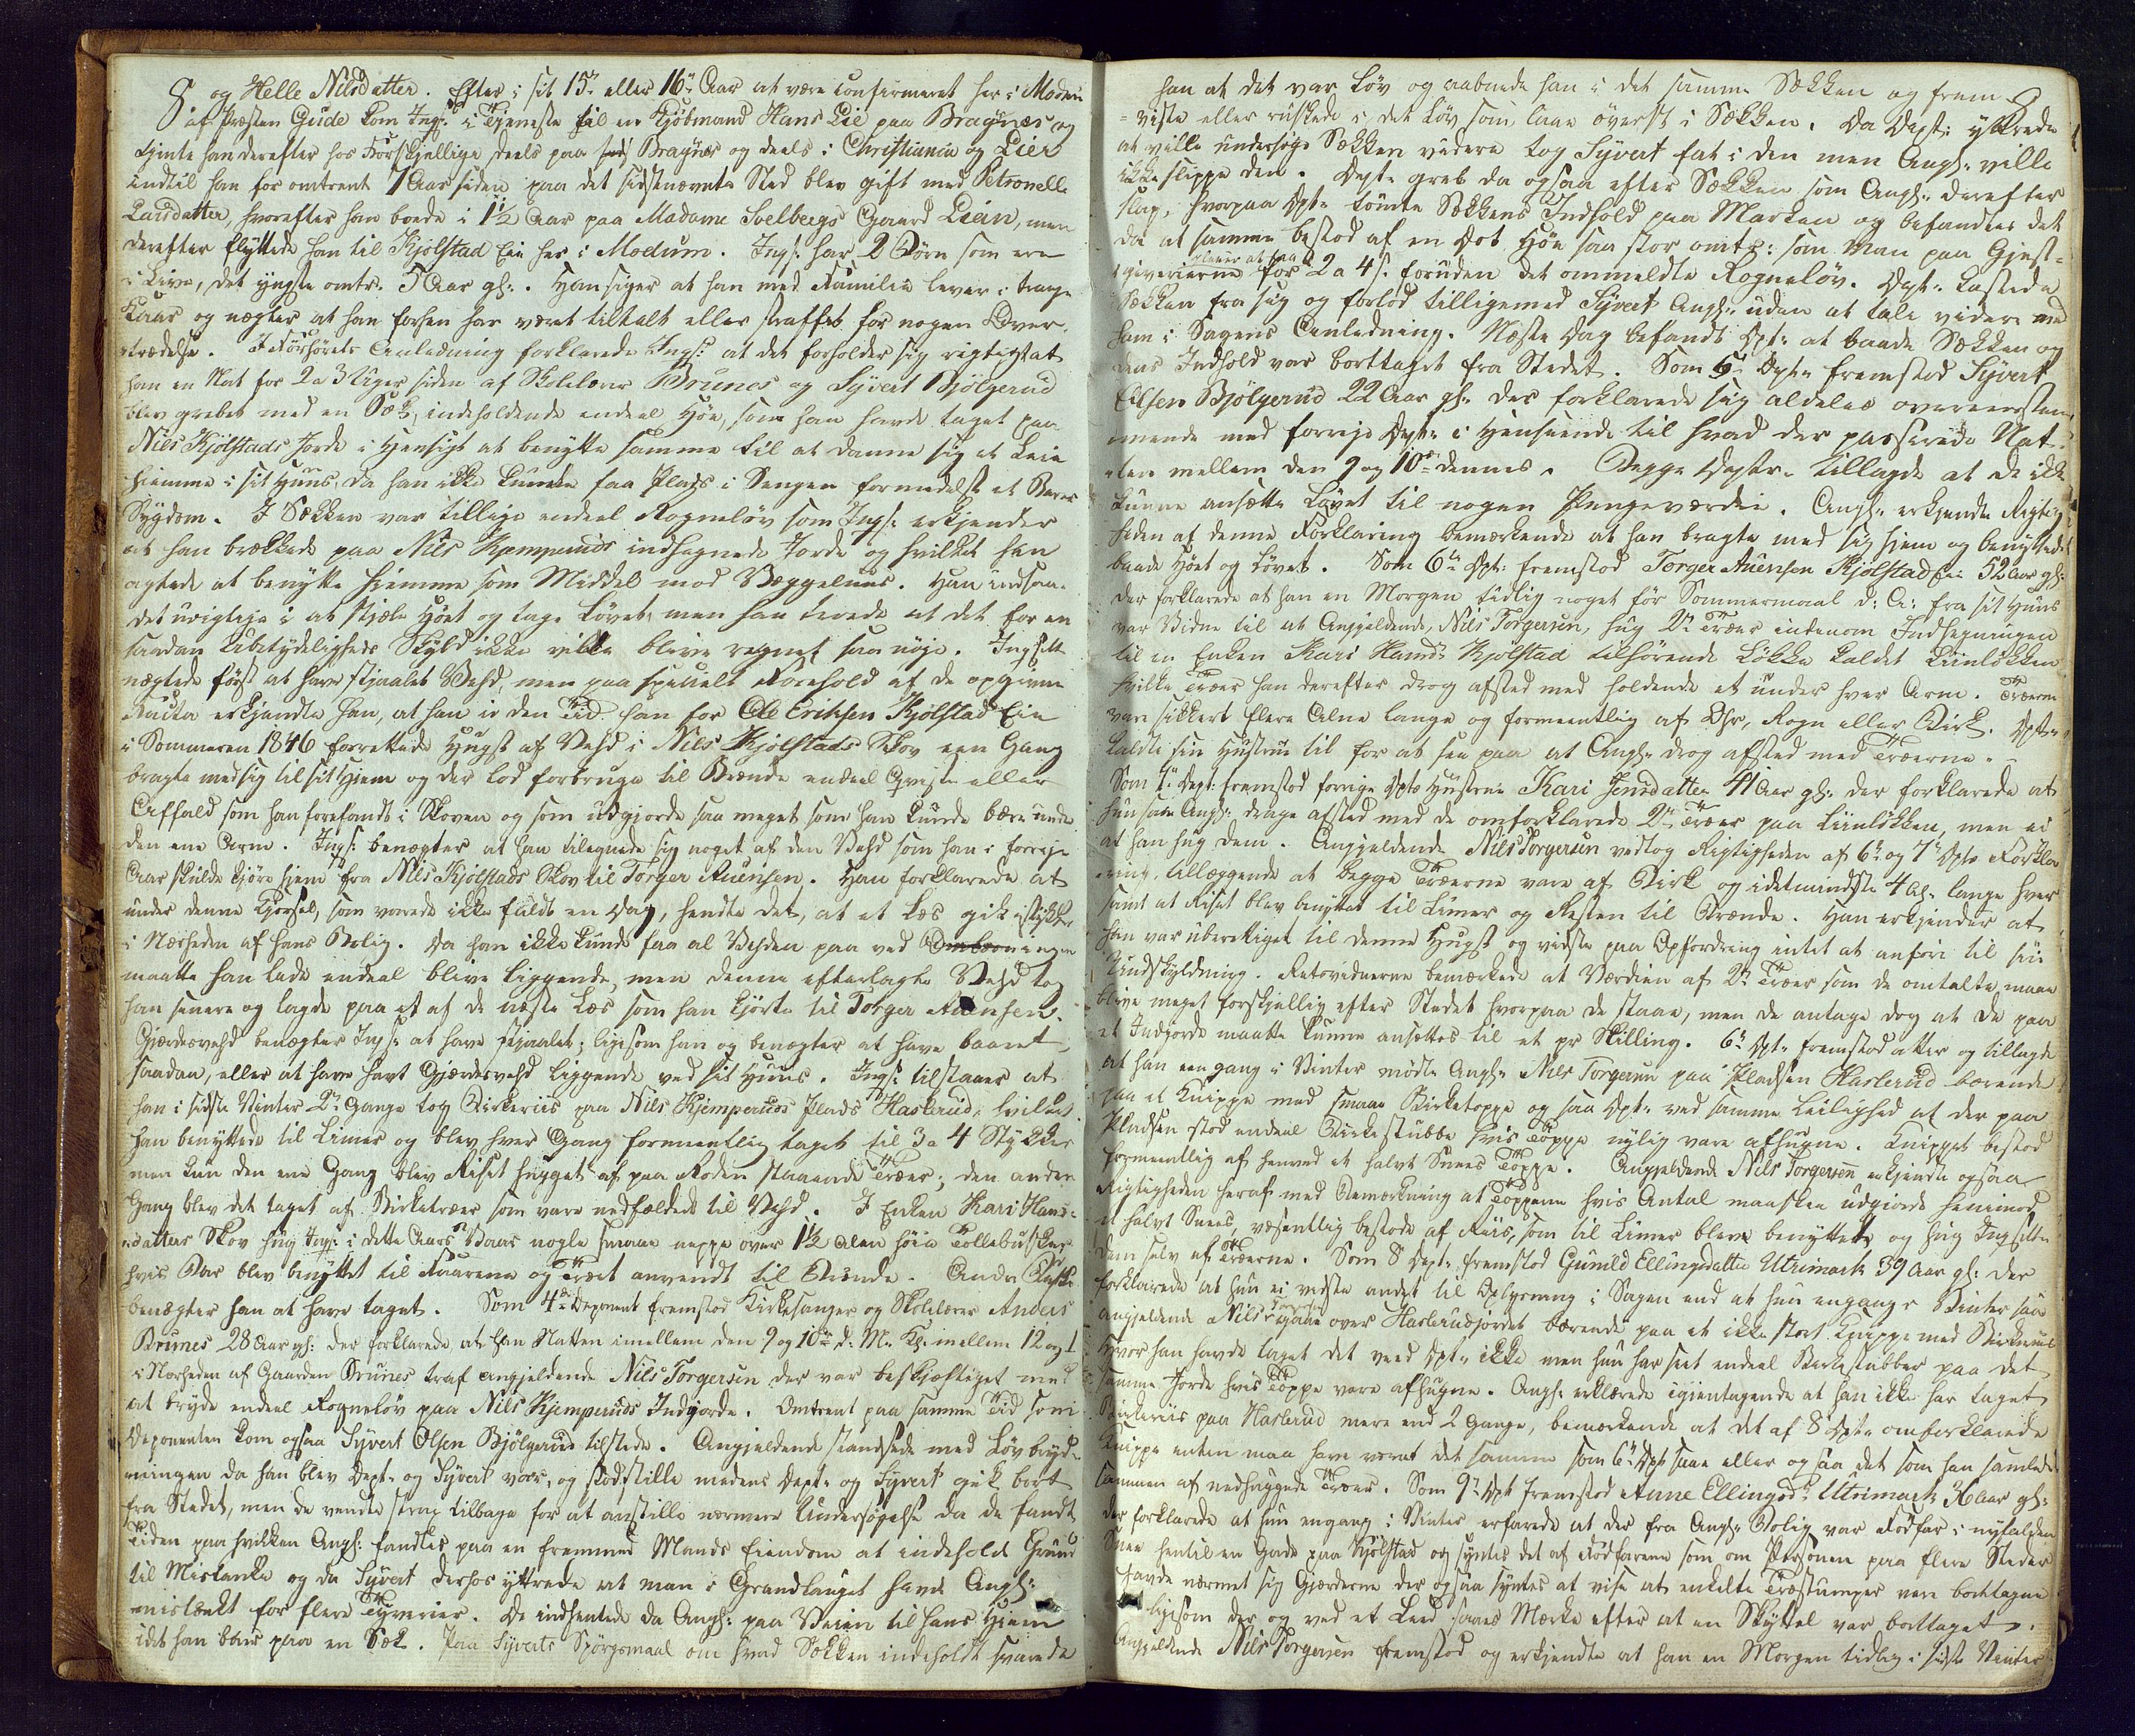 8.
og Helle Nilsdatter. Efter i sit 15de eller 16de Aar at være confirmeret her i Modum
af Præsten Gude kom Ings: i Tjeneste til en Kjöbmand Hans Lie paa Bragnæs og
tjente han derefter hos Forskjellige deels paa Bragnæs og deels i Christiania og Lier
indtil han for omtrent 7 Aar siden paa det sidstnævnte Sted blev gift med Petronelle
Larsdatter, hvorefter han boede i 1½ Aar paa Madame Svelbergs Gaard Lien, men
derefter flyttede han til Kjölstad Eie her i Modum. Ings: har 2 Börn som ere
i Live, det yngste omtr. 5 Aar gl:. Han siger at han med Familie lever i trange
Kaar og nægter at han forhen har været tiltalt eller straffet for nogen Over-
trædelse. I Forhörets Anledning forklarede Ings: at det forholder sig rigtigt at
han en Nat for 2 a 3 Uger siden af Skolelærer Brunes og Syvert Bjölgerud
blev grebet med en Sæk, indeholdende endeel Höe, som han havde taget paa
Nils Kjölstads Jorde i Hensigt at benytte samme til at danne sig et Leie
hjemme i sit Huus, da han ikke kunde faa Plads i Sengen formedelst et Barns
Sygdom. I Sækken var tillige endeel Rogneløv som Ings: erkjender
at han brækkede paa Nils Kjemperuds indhegnede Jorde og hvilket han
agtede at benytte hjemme som Middel mod Væggeluus. Han indsaae
det urigtige i at stjæle Höet og tage Lövet, men han troede at det for en
saadan Ubetydeligheds Skyld ikke vilde blive regnet saa nöje. Ingsitte
nægtede först at have stjaalet Vehd, men paa specielt Forehold af de opgivne
Facta erkjendte han, at han i den Tid han for Ole Eriksen Kjölstad Eie
i Sommeren 1846 forrettede Hugst af Vehd i Nils Kjölstads Skov een Gang
bragte med sig til sit Hjem og der lod forbruge til Brænde endeel Qviste eller
Affald som han forefandt i Skoven og som udgjorde saa meget som han kunde bære under
den ene Arm. Ings: benægter at han tilegnede sig noget af den Vehd som han i forrige
Aar skulde kjöre hjem fra Nils Kjölstads Skov til Torger Auensen. Han forklarede at
under denne Kjörsel, som varede ikke fuldt en Dag, hendte det, at et Læs gik istykker
i Nærheden af hans Bolig. Da han ikke kunde faa al Vehden paa ved
maatte han lade endeel blive liggende, men denne efterlagte Vehd tog
han senere og lagde paa et af de næste Læs som han kjörte til Torger Auensen.
Gjærdesvehd benægter Ings: at have stjaalet; ligesom han og benægter at have baaret
saadan, eller at have havt Gjærdesvehd liggende ved sit Huus. Ings: tilstaaer at
han i sidste Vinter 2de Gange tog Birkeriis paa Nils Kjemperuds Plads Haslerud, hvilket
han benyttede til Limer og blev hver Gang formeentlig taget til 3 a 4 Stykker
men kun den ene Gang blev Riset hugget af paa Roden staaende Træer; den anden
Gang blev det taget af Birketræer som vare nedfældede til Vehd. I Enken Kari Hans-
datters Skov hug Ings: i dette Aars Vaar nogle smaae neppe over 1½ Alen höie Tollebuske
hvis Bar blev benyttet til Faarene og Træet anvendt til Brænde. Andre Buske
benægter han at have taget. Som 4de Deponent fremstod Kirkesanger og Skolelærer Anders
Brunes 28 Aar gl: der forklarede, at han Natten imellem den 9 og 10de d: M. Kl: imellem 12 og 1
i Nærheden af Gaarden Brunes traf angjeldende Nils Torgersen der var beskjæftiget med
at bryde endeel Rogneløv paa Nils Kjemperuds Indgjorde. Omtrent paa samme Tid som
Deponenten kom ogsaa Syvert Olsen Bjölgerud tilstede. Angjeldende standsede med Lövbryd-
ningen da han blev Dept. og Syvert vaer, og stod stille medens Dept. og Syvert gik bort
fra Stedet, men de vendte strax tilbage for at anstille nærmere Undersögelse da de fandt
Tiden paa hvilken Angj: fandtes paa en fremmed Mands Eiendom at indeholde Grund
til Mistanke og da Syvert derhos yttrede at man i Grandlauget havde Angj:
mistænkt for flere Tyverier. De indhentede da Angj: paa Veien til hans Hjem
idet han bar paa en Sæk. Paa Syverts Spörgsmaal om hvad Sækken indeholdt svarede
8
han at det var Löv og aabnede han i det samme Sækken og frem-
viste eller ruskede i det Löv som laae överst i Sækken. Da Dept: yttrede
at ville undersöge Sækken videre tog Syvert fat i den men Angj: ville
ikke slippe den. Dept. greb da ogsaa efter Sækken som Angj: derefter
slap, hvorpaa Dpt. tömte Sækkens Indhold paa Marken og befandtes det
da at samme bestod af en Dot Höe saa stor omtr: som man paa Gjæst-
giverierne pleier at faa for 2 a 4 s. foruden det ommeldte Rogneløv. Dpt. kastede
Sækken fra sig og forlod tilligemed Syvert Angj: uden at tale videre med
ham i Sagens Anledning. Næste Dag befandt Dpt. at baade Sækken og
dens Indhold var borttaget fra Stedet. Som 5te Dpt. fremstod Syvert
Olsen Bjölgerud 22 Aar gl: der forklarede sig aldeles overeenstem-
mende med forrige Dpt. i Henseende til hvad der passerede Nat-
ten mellem den 9 og 10de dennes. Begge Dptr. tillagde at de ikke
kunne ansætte Lövet til nogen Pengeværdie. Angj. erkjendte Rigtig-
heden af denne Forklaring bemærkende at han bragte med sig hjem og benyttede
baade Höet og Lövet. Som 6te Dpt: fremstod Torger Auensen Kjölstad Eie 52 Aar gl:
der forklarede at han en Morgen tidlig noget för Sommermaal d: A: fra sit Huus
var Vidne til at Angjeldende, Nils Torgersen, hug 2de Træer indenom Indhegningen
til en Enken Kari Hansd. Kjölstad tilhörende Lökke kaldet Liinlökken
hvilke Træer han derefter drog afsted med holdende et under hver Arm. Træerne
vare sikkert flere Alne lange og formeentlig af Asp, Rogn eller Birk. Dpt.
kaldte sin Hustrue til for at see paa at Angj. drog afsted med Træerne.
Som 7de Dept: fremstod forrige Dpts Hustrue Kari Jensdatter 41 Aar gl: der forklarede at
hun saae Angj: drage afsted med de omforklarede 2de Træer paa Liinlökken, men ei
at han hug dem. Angjeldende Nils Torgersen vedtog Rigtigheden af 6te og 7de Dpts Forkla-
ring, tillæggende at begge Træerne vare af Birk og idetmindste 4 Al: lange hver
samt at Riset blev benyttet til Limer og Resten til Brænde. Han erkjender at
han var uberettiget til denne Hugst og vidste paa Opfordring intet at anföre til sin
Undskyldning. Retsvidnerne bemærkede at Værdien af 2de Træer som de omtalte maae
blive meget forskjellig efter Stedet hvorpaa de staae, men de antage dog at de paa
et Indgjorde maatte kunne ansættes til et pr Skilling. 6te Dpt. fremstod atter og tillagde
at han een gang i Vinter mødte Angj. Nils Torgersen paa Pladsen Haslerud bærende
paa et Knippe med smaae Birketoppe og saa Dpt. ved samme Leilighed at der paa
Pladsen stod endeel Birkestubbe hvis Toppe nylig vare afhugne. Knippet bestod
formeentlig af henved et halvt Snees Toppe. Angjeldende Nils Torgersen erkjendte ogsaa
Rigtigheden heraf med Bemærkning at Toppene hvis Antal maaskee udgjorde henimod
et halvt Snees, væsentlig bestode af Riis, som til Limer bleve benyttede og hug Ingsitte
dem selv af Træerne. Som 8 Dept. fremstod Gunild Ellingsdatter Utrimark 39 Aar gl: der
forklarede at hun ei vidste andet til Oplysning i Sagen end at hun engang i Vinter saae
angjeldende Nils Torgersen gaae over Haslerudjordet bærende paa et ikke stort Knippe med Birkeriis
Hvor han havde taget det veed Dpt. ikke men hun har seet endeel Birkestubber paa det
samme Jorde hvis Toppe vare afhugne. Angj. erklærede igjentagende at han ikke har taget
Birkeriis paa Haslerud mere end 2 Gange, bemærkende at det af 8 Dpt. omforklarede
Knippe enten maa have været det samme som 6te Dpt saae eller ogsaa det som han samlede
sammen af nedhuggede Træer. Som 9de Dpt fremstod Anne Ellingsdr Utrimark 36 Aar gl:
der forklarede at hun engang i Vinter erfarede at der fra Angj. Bolig var Fodfar i nyfalden
Snee hentil en Gade paa Kjölstad og syntes det af Fodfarene som om Personen paa flere Steder
havde nærmet sig Gjærderne der ogsaa syntes at vise at enkelte Træstumper vare borttagne
ligesom der og ved et Leed saaes Mærke efter at en Skyttel var borttaget.
Angjeldende Nils Torgersen fremstod og erkjendte at han en Morgen tidlig i sidste Vinter